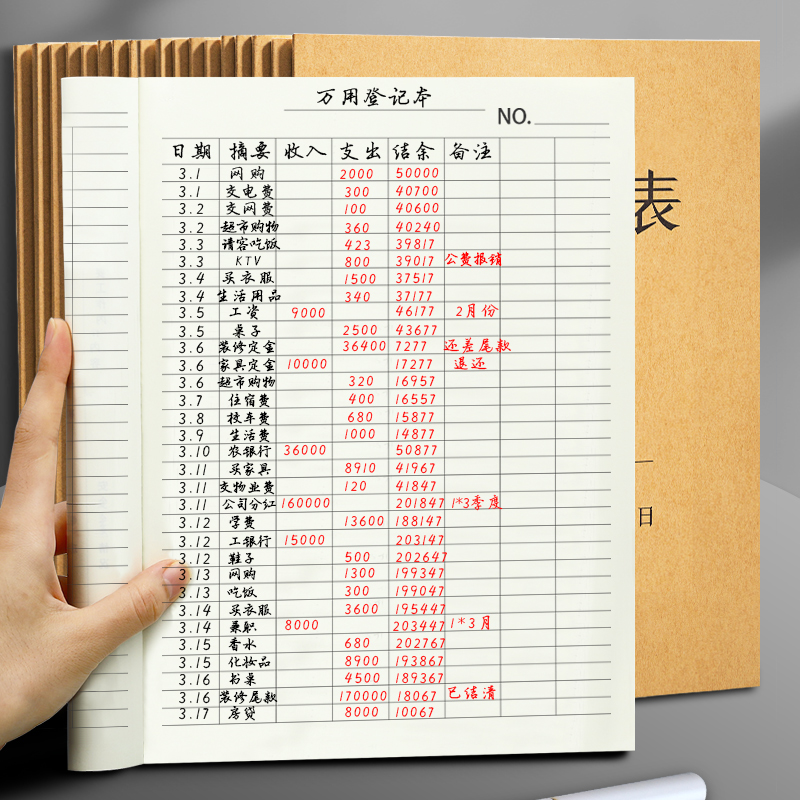 万用登记本
NO.
日期 摘要 收入 支出 结余 备注
3.1 网购 2000 50000
3.1 交电费 300 40700
3.2 交网费 100 40600
3.2 超市购物 360 40240
3.3 请客吃饭 423 39817
3.3 KTV 800 39017 公费报销
3.4 买衣服 1500 37517
3.4 生活用品 340 37177
3.5 工资 9000 46177 2月份
3.5 桌子 2500 43677
3.6 装修定金 36400 7277 还差尾款
3.6 家具定金 10000 17277 退还
3.6 超市购物 320 16957
3.7 住宿费 400 16557
3.8 校车费 680 15877
3.9 生活费 1000 14877
3.10 农银行 36000 50877
3.11 买家具 8910 41967
3.11 交物业费 120 41847
3.11 公司分红 160000 201847 1*3季度
3.12 学费 13600 188147
3.12 工银行 15000 203147
3.12 鞋子 500 202647
3.13 网购 1300 199347
3.13 吃饭 300 199047
3.14 买衣服 3600 195447
3.14 兼职 8000 203447 1*3月
3.15 香水 680 202767
3.15 化妆品 8900 193867
3.16 书桌 4500 189367
3.16 装修尾款 170000 18067 已结清
3.17 房贷 8000 10067
表
日